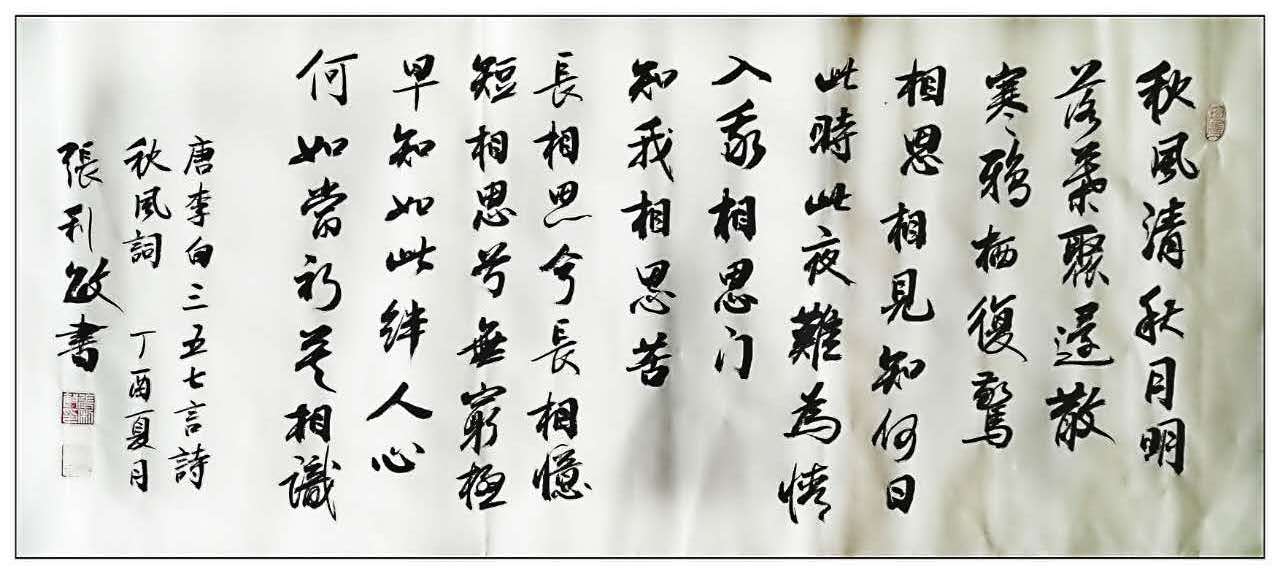 秋風清秋月明
落葉聚還散
寒鴉栖復驚
相思相見知何日
此時此夜難為情
入我相思門
知我相思苦
長相思兮長相憶
短相思兮無窮極
早知如此絆人心
何如當初莫相識
唐李白三五七言詩
秋風詞 丁酉夏月
張利書